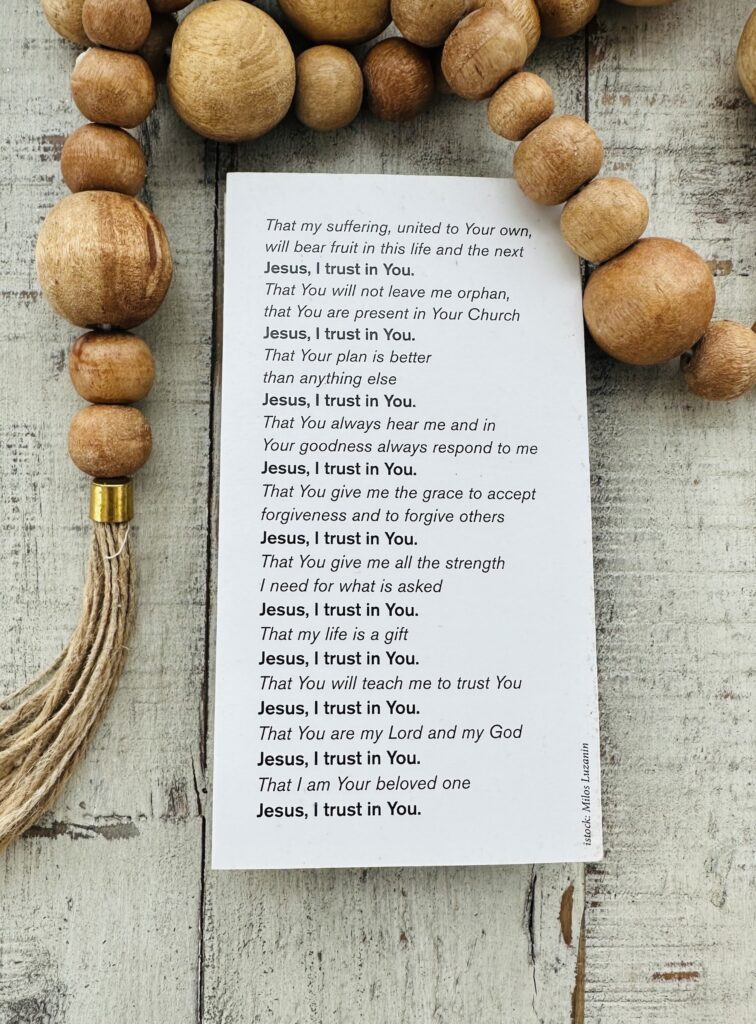 That my suffering, united to Your own,
will bear fruit in this life and the next
Jesus, I trust in You.
That You will not leave me orphan,
that You are present in Your Church
Jesus, I trust in You.
That Your plan is better
than anything else
Jesus, I trust in You.
That You always hear me and in
Your goodness always respond to me
Jesus, I trust in You.
That You give me the grace to accept
forgiveness and to forgive others
Jesus, I trust in You.
That You give me all the strength
I need for what is asked
Jesus, I trust in You.
That my life is a gift
Jesus, I trust in You.
That You will teach me to trust You
Jesus, I trust in You.
That You are my Lord and my God
Jesus, I trust in You.
That I am Your beloved one
Jesus, I trust in You.
istock: Milos Luzanin